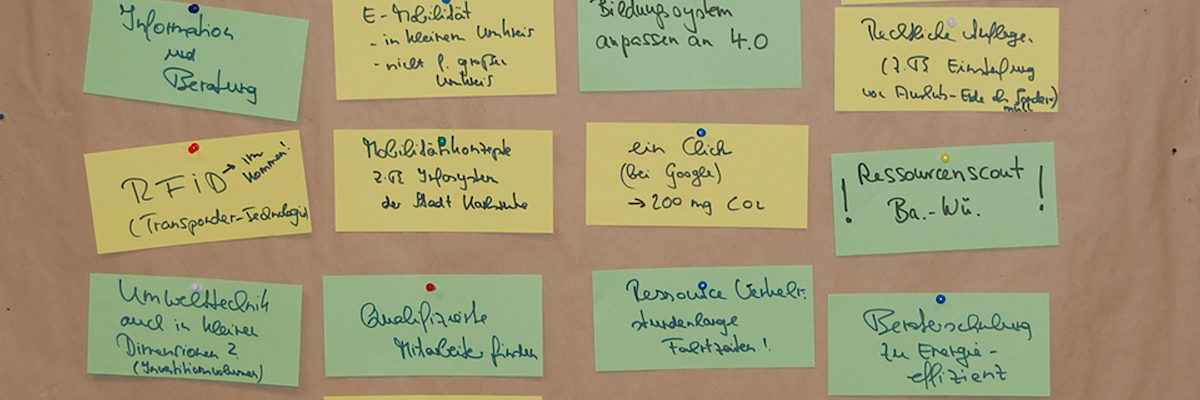 Information
und
Beratung
E-Mobilität
- in kleinem Umkreis
- nicht f. großen
Umkreis
Bildungssystem
anpassen an 4.0
Rechtliche Auflage.
(z.B. Einstufung
von Aushub-Erde als Sonder-)
müll
RFiD → im
kommen!
(Transponder-Technologie)
Mobilitätskonzepte
z.B. Infosystem
der Stadt Karlsruhe
ein Click
(bei Google)
→ 200 mg CO2
! Ressourcenscout !
Ba.-Wü.
Umwelttechnik
auch in kleinen
Dimensionen ?
(Investitionsvolumen)
Qualifizierte
Mitarbeiter finden
Ressource Verkehr:
stundenlange
Fahrtzeiten !
Beraterschulung
zu Energie-
effizienz